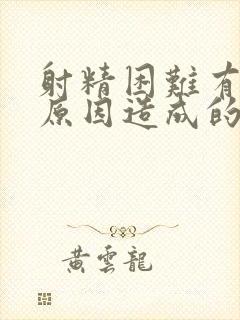 射精困難有
原因造成的
黃雲龍